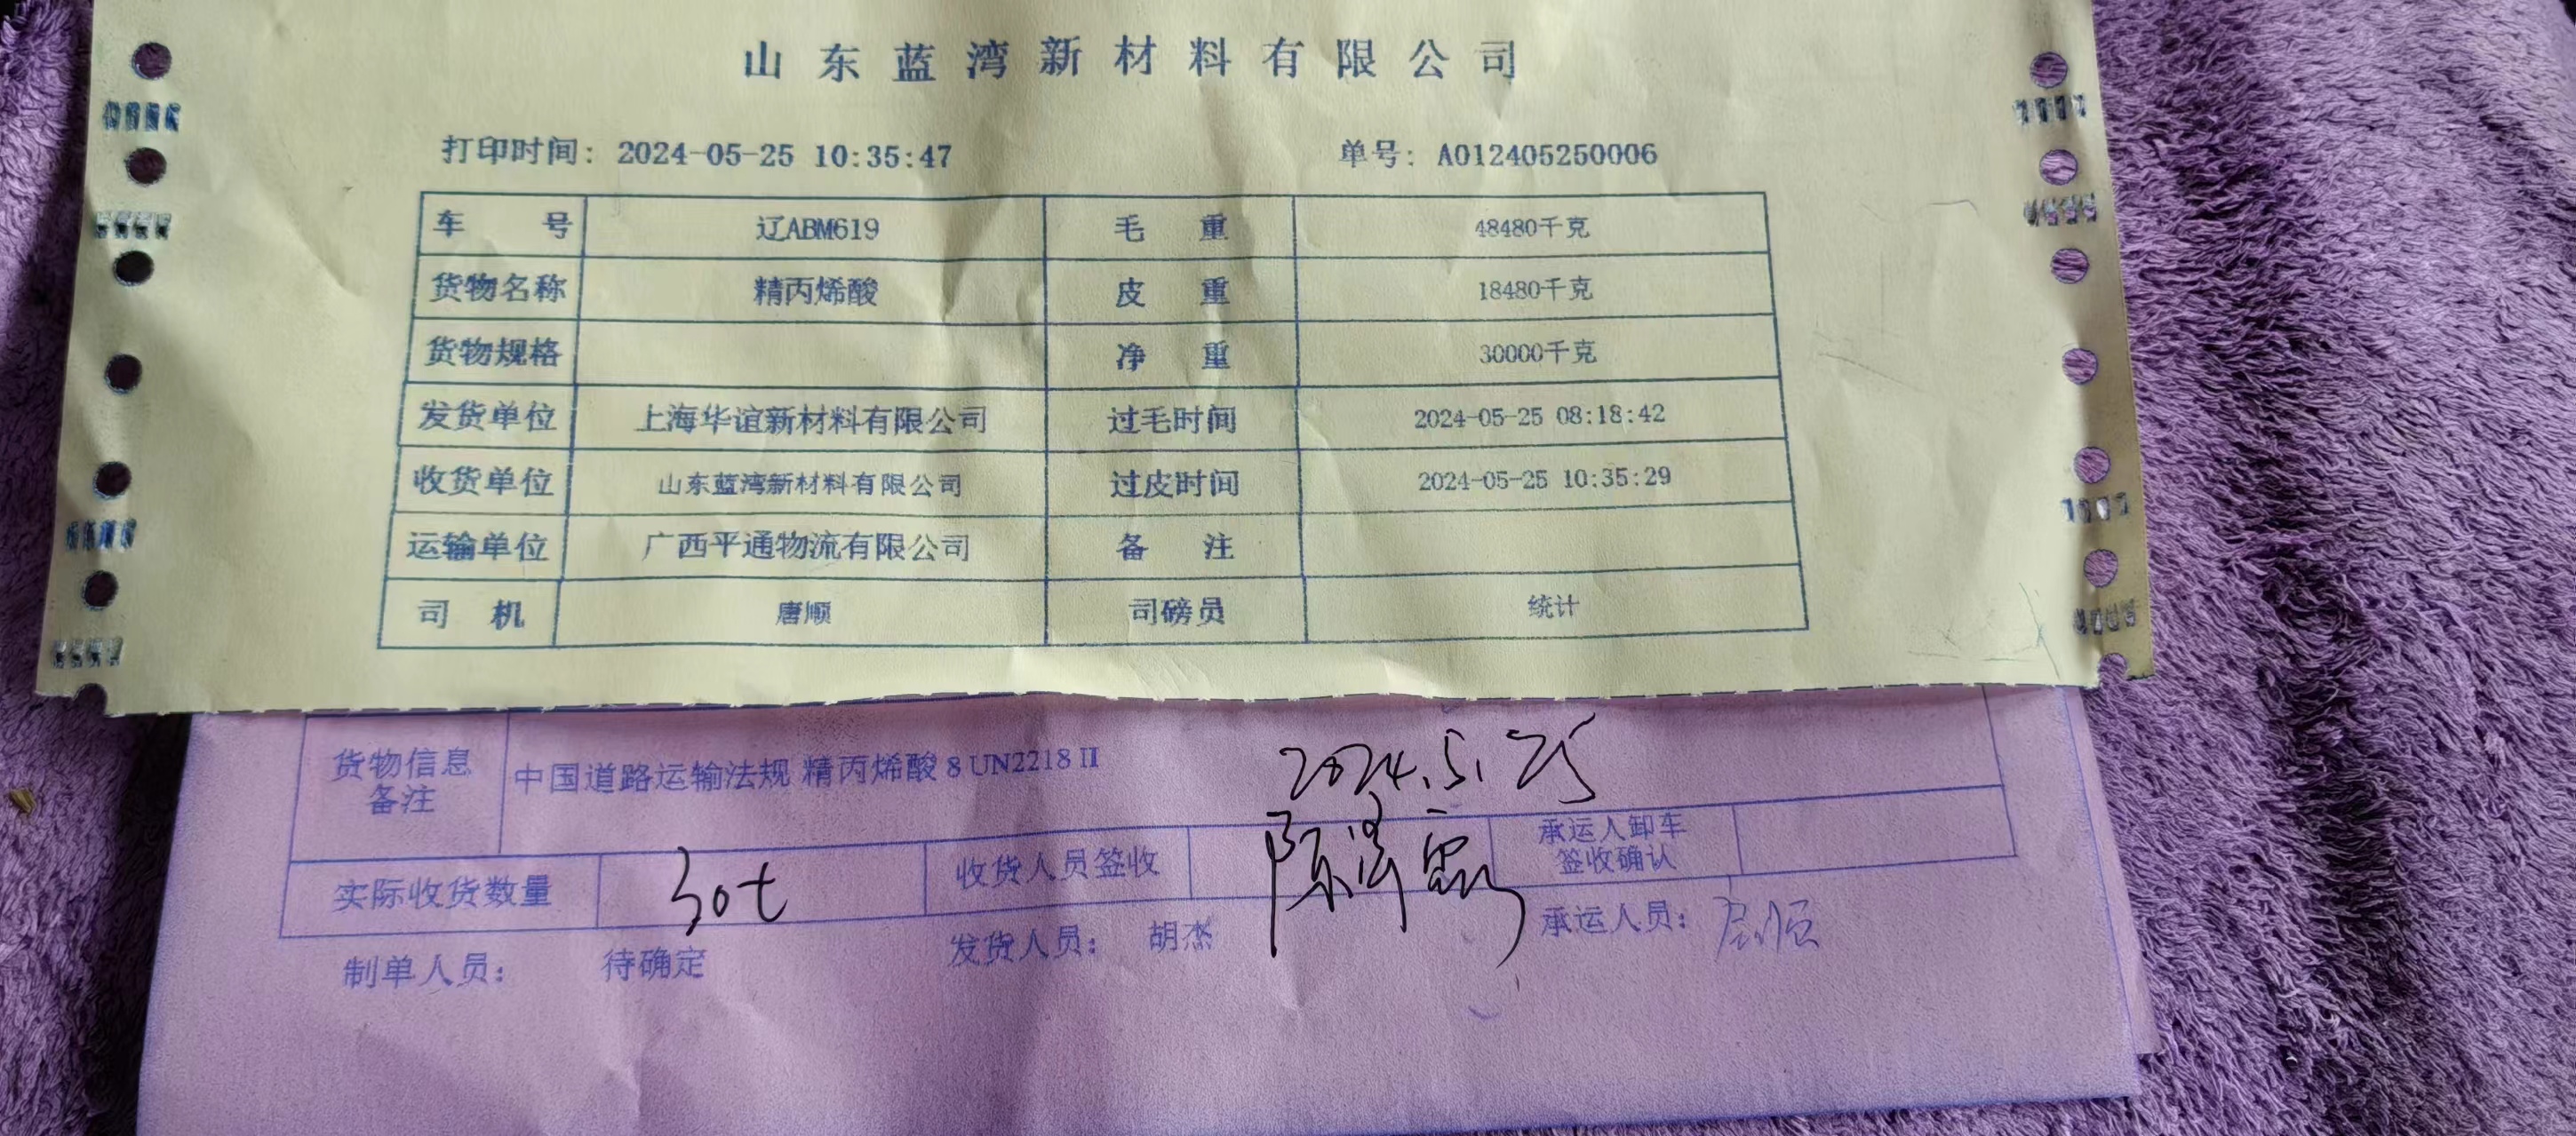 山东蓝湾新材料有限公司
打印时间: 2024-05-25 10:35:47 单号: A012405250006
车号 辽ABM619 毛重 48480千克
货物名称 精丙烯酸 皮重 18480千克
货物规格 净重 30000千克
发货单位 上海华谊新材料有限公司 过毛时间 2024-05-25 08:18:42
收货单位 山东蓝湾新材料有限公司 过皮时间 2024-05-25 10:35:29
运输单位 广西平通物流有限公司 备注
司机 唐顺 司磅员 统计
货物信息备注 中国道路运输法规 精丙烯酸 8 UN2218 II
2024.5.25
实际收货数量 30t 收货人员签收 承运人卸车签收确认
制单人员: 待确定 发货人员: 胡杰 承运人员: 唐顺